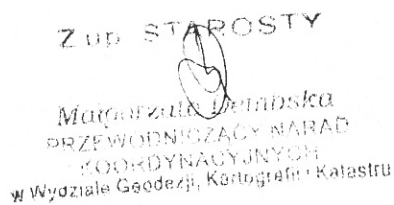 Z up STAROSTY
Małgorzata
PRZEWODNICZĄCY NARAD
KOORDYNACYJNYCH
w Wydziale Geodezji, Kartografii i Katastru